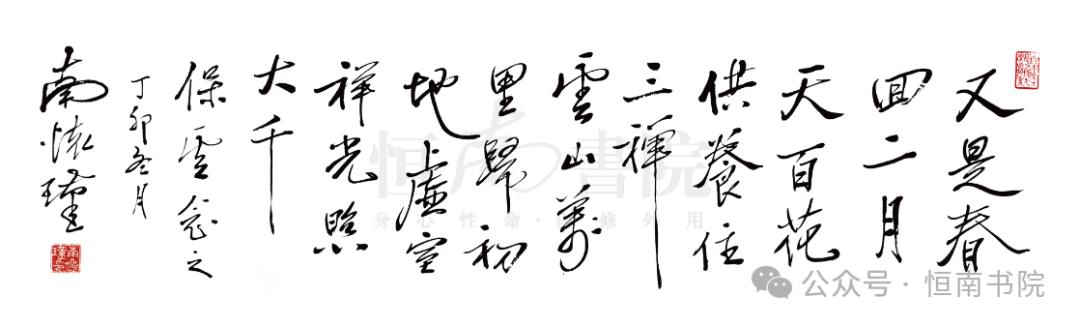 又是春
回二月
天百花
供養住
三禪
雲山萬
里歸初
地虛空
祥光照
大千
保雲念之
丁卯冬月
南懷瑾
恒南書院
身心性命·內修外用
公众号·恒南书院